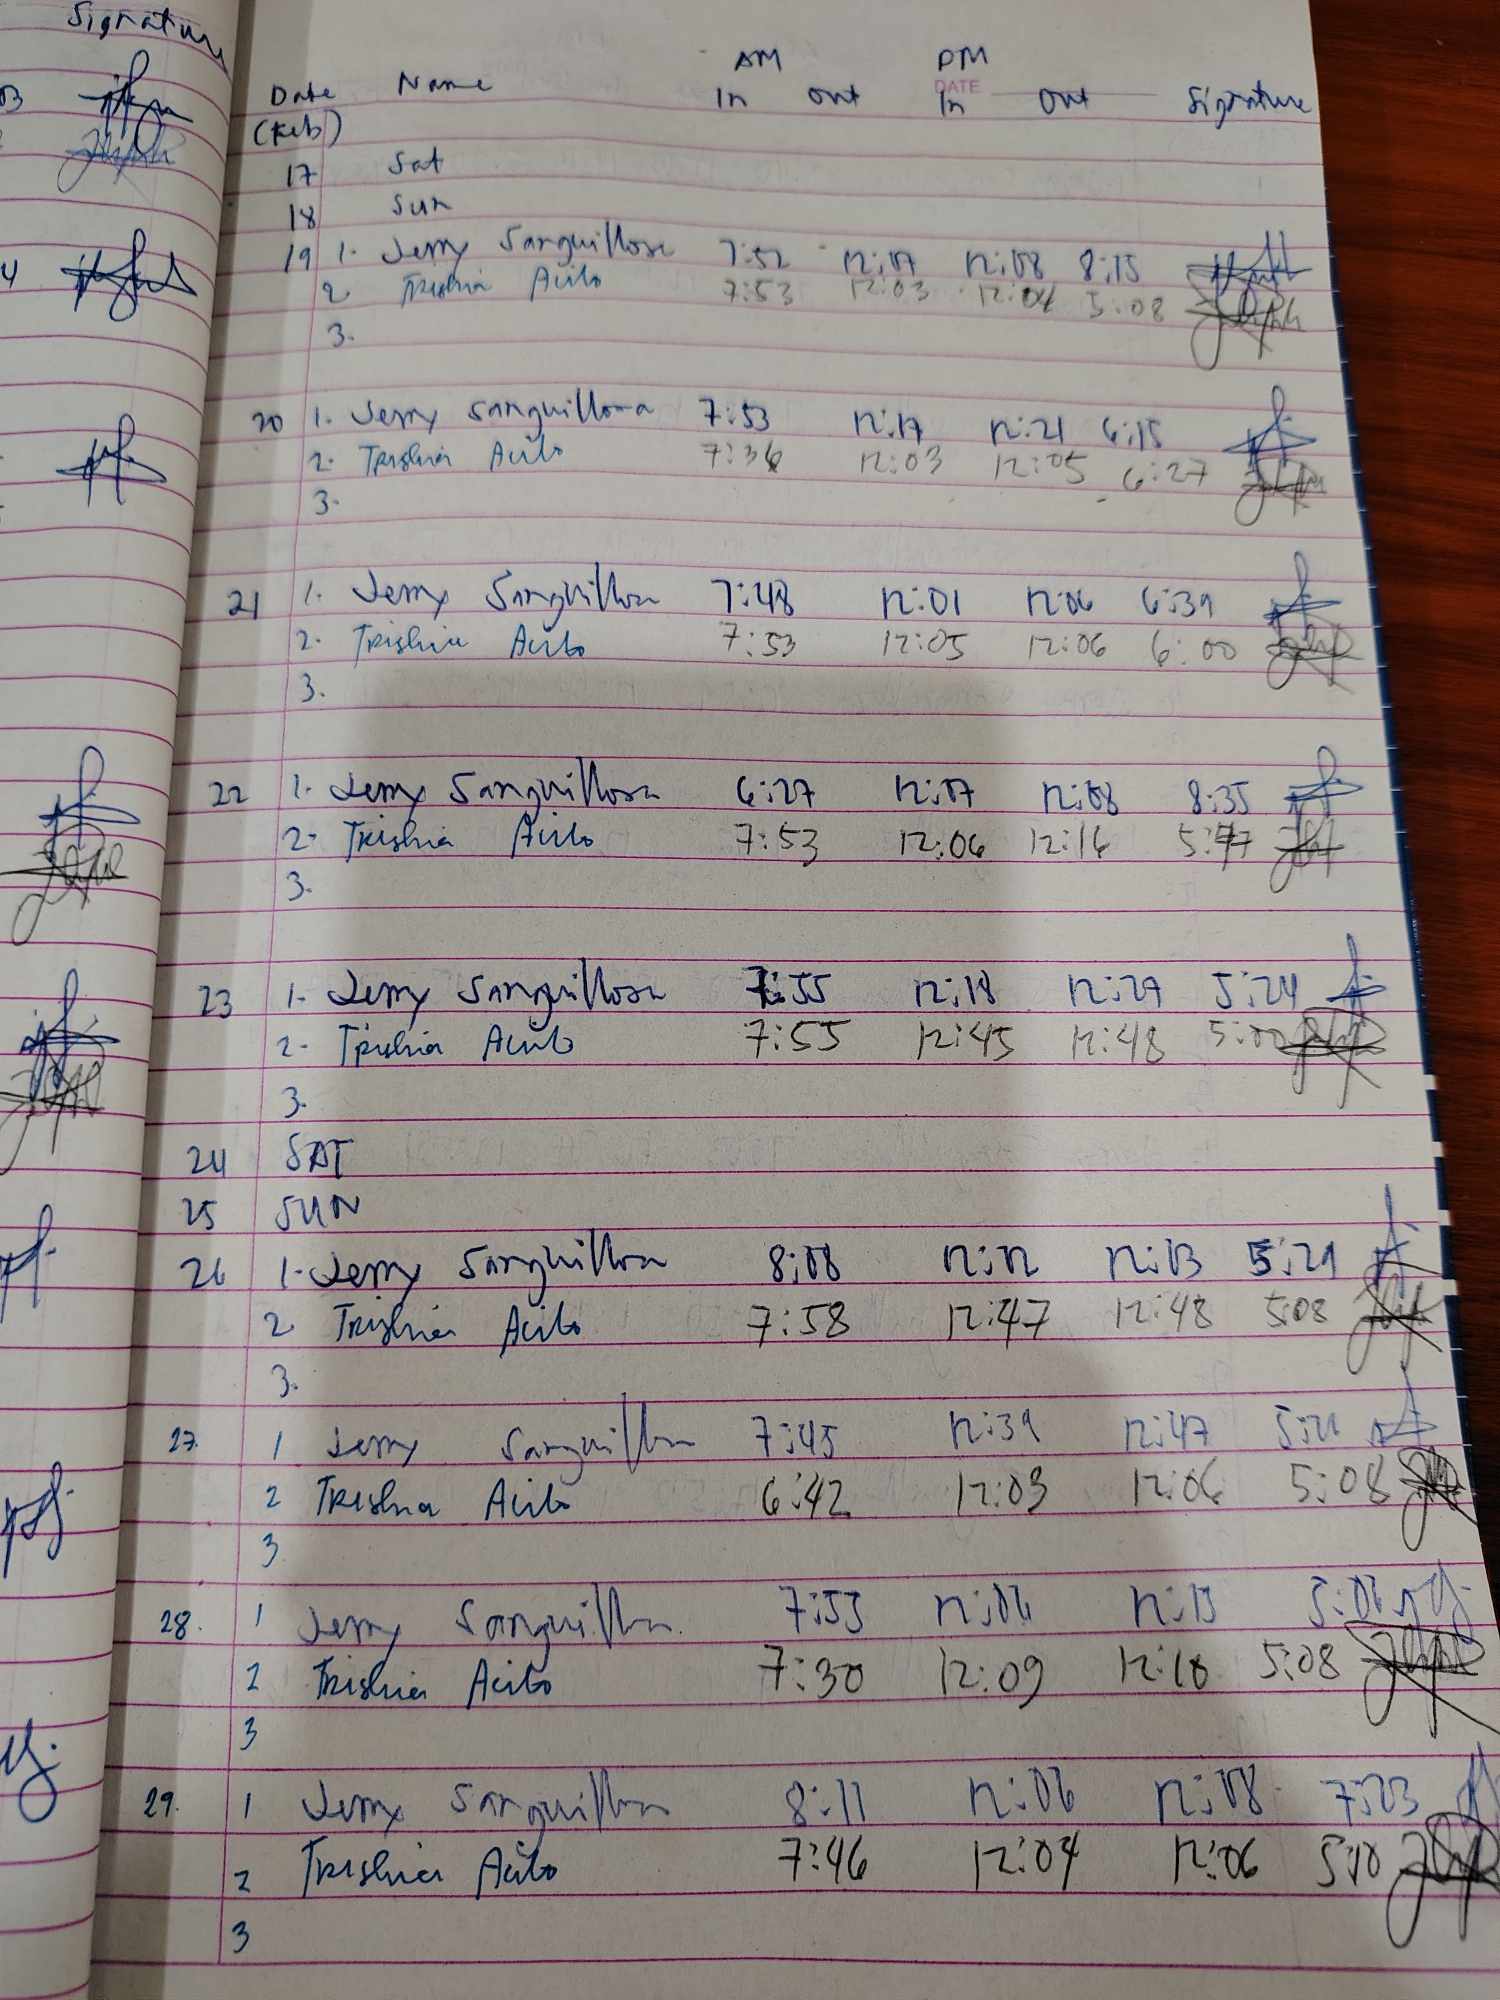 Signature
03
4
AM PM
Date Name In Out DATE In Out Signature
(Feb)
17 Sat
18 Sun
19 1. Jerry Sanguillosa 7:52 12:07 12:08 8:15
2 Trishia Acibo 7:53 12:03 12:04 5:08
3.
20 1. Jerry Sanguillosa 7:53 12:17 12:21 6:15
2. Trishia Acibo 7:36 12:03 12:05 6:27
3.
21 1. Jerry Sanguillosa 7:48 12:01 12:06 6:39
2. Trishia Acibo 7:53 12:05 12:06 6:00
3.
22 1. Jerry Sanguillosa 6:27 12:07 12:08 8:35
2. Trishia Acibo 7:53 12:06 12:16
3.
23 1. Jerry Sanguillosa 7:55 12:18 12:27 5:24
2. Trishia Acibo 7:55 12:45 12:48 5:00
3.
24 SAT
25 SUN
26 1. Jerry Sanguillosa 8:08 12:12 12:13 5:29
2 Trishia Acibo 7:58 12:47 12:48 5:08
3.
27. 1 Jerry Sanguillosa 7:45 12:39 12:47
2 Trishia Acibo 6:42 12:03 12:06 5:08
3
28. 1 Jerry Sanguillosa 7:53 12:06 12:13
2 Trishia Acibo 7:30 12:09 12:10 5:08
3
29. 1 Jerry Sanguillosa 8:11 12:06 12:08 7:23
2 Trishia Acibo 7:46 12:04 12:06 5:10
3